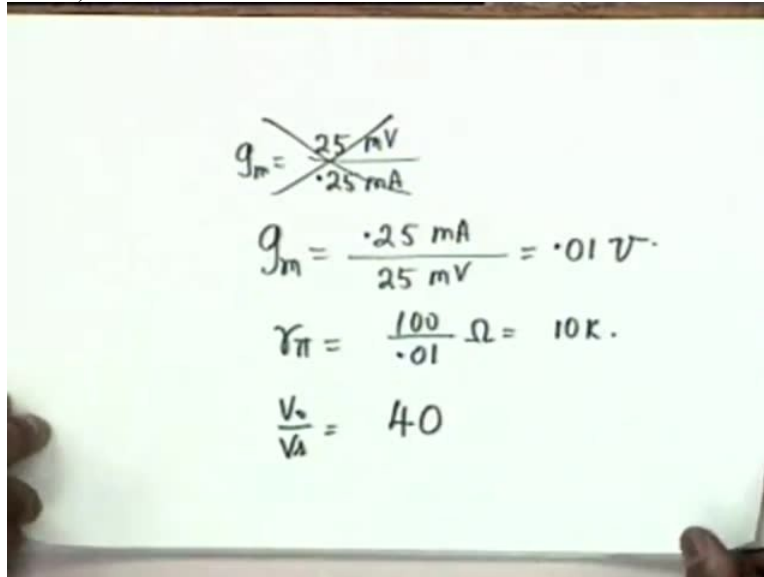 gm = 25 mV / .25 mA
gm = .25 mA / 25 mV = .01 ℧.
rπ = 100 / .01 Ω = 10K.
Vo / Vs = 40